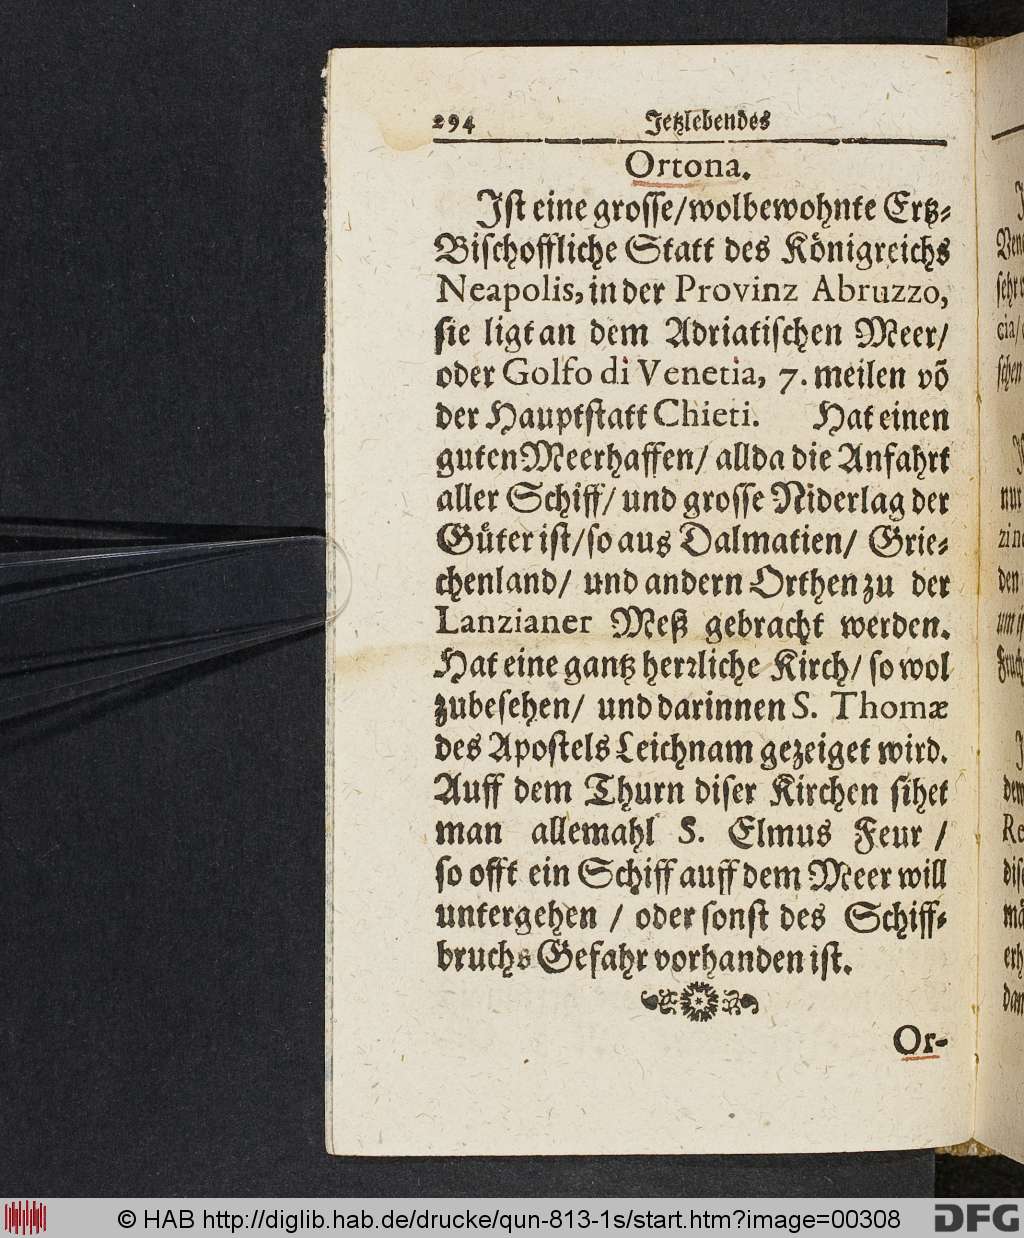 294 Jetzlebendes
Ortona.
Jſt eine groſſe/wolbewohnte Ertz⸗
Biſchoffliche Statt des Königreichs
Neapolis, in der Provinz Abruzzo,
ſie ligt an dem Adriatiſchen Meer/
oder Golfo di Venetia, 7. meilen võ
der Hauptſtatt Chieti. Hat einen
guten Meerhaffen/ allda die Anfahrt
aller Schiff/ und groſſe Niderlag der
Güter iſt/ſo aus Dalmatien/ Grie⸗
chenland/ und andern Orthen zu der
Lanzianer Meß gebracht werden.
Hat eine gantz herꝛliche Kirch/ ſo wol
zubeſehen/ und darinnen S. Thomæ
des Apoſtels Leichnam gezeiget wird.
Auff dem Thurn diſer Kirchen ſihet
man allemahl S. Elmus Feur /
ſo offt ein Schiff auff dem Meer will
untergehen / oder ſonſt des Schiff⸗
bruchs Gefahr vorhanden iſt.
Or-
© HAB http://diglib.hab.de/drucke/qun-813-1s/start.htm?image=00308
DFG